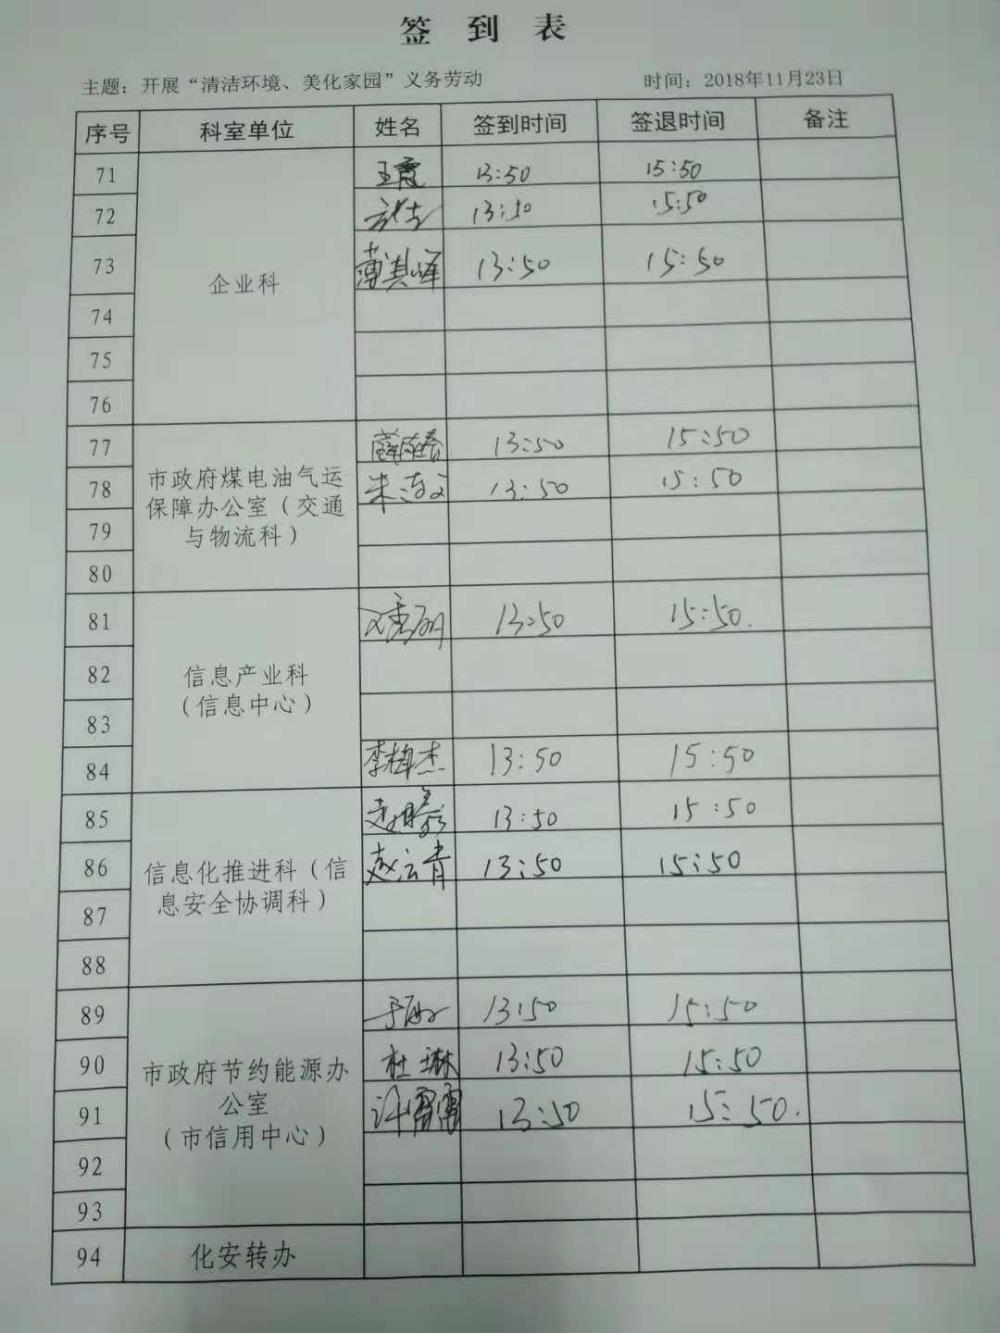 签到表
主题：开展“清洁环境、美化家园”义务劳动 时间：2018年11月23日
序号 科室单位 姓名 签到时间 签退时间 备注
71 王霞 13:50 15:50
72 13:50 15:50
73 薄其峰 13:50 15:50
企业科
74
75
76
77 13:50 15:50
市政府煤电油气运
78 13:50 15:50
保障办公室（交通
79
与物流科）
80
81 13:50 15:50.
82
信息产业科
（信息中心）
83
84 李梅杰 13:50 15:50
85 13:50 15:50
86 赵云青 13:50 15:50
信息化推进科（信
息安全协调科）
87
88
89 13:50 15:50
90 杜琳 13:50 15:50
市政府节约能源办
公室
91 许雷雷 13:50 15:50.
（市信用中心）
92
93
94 化安转办